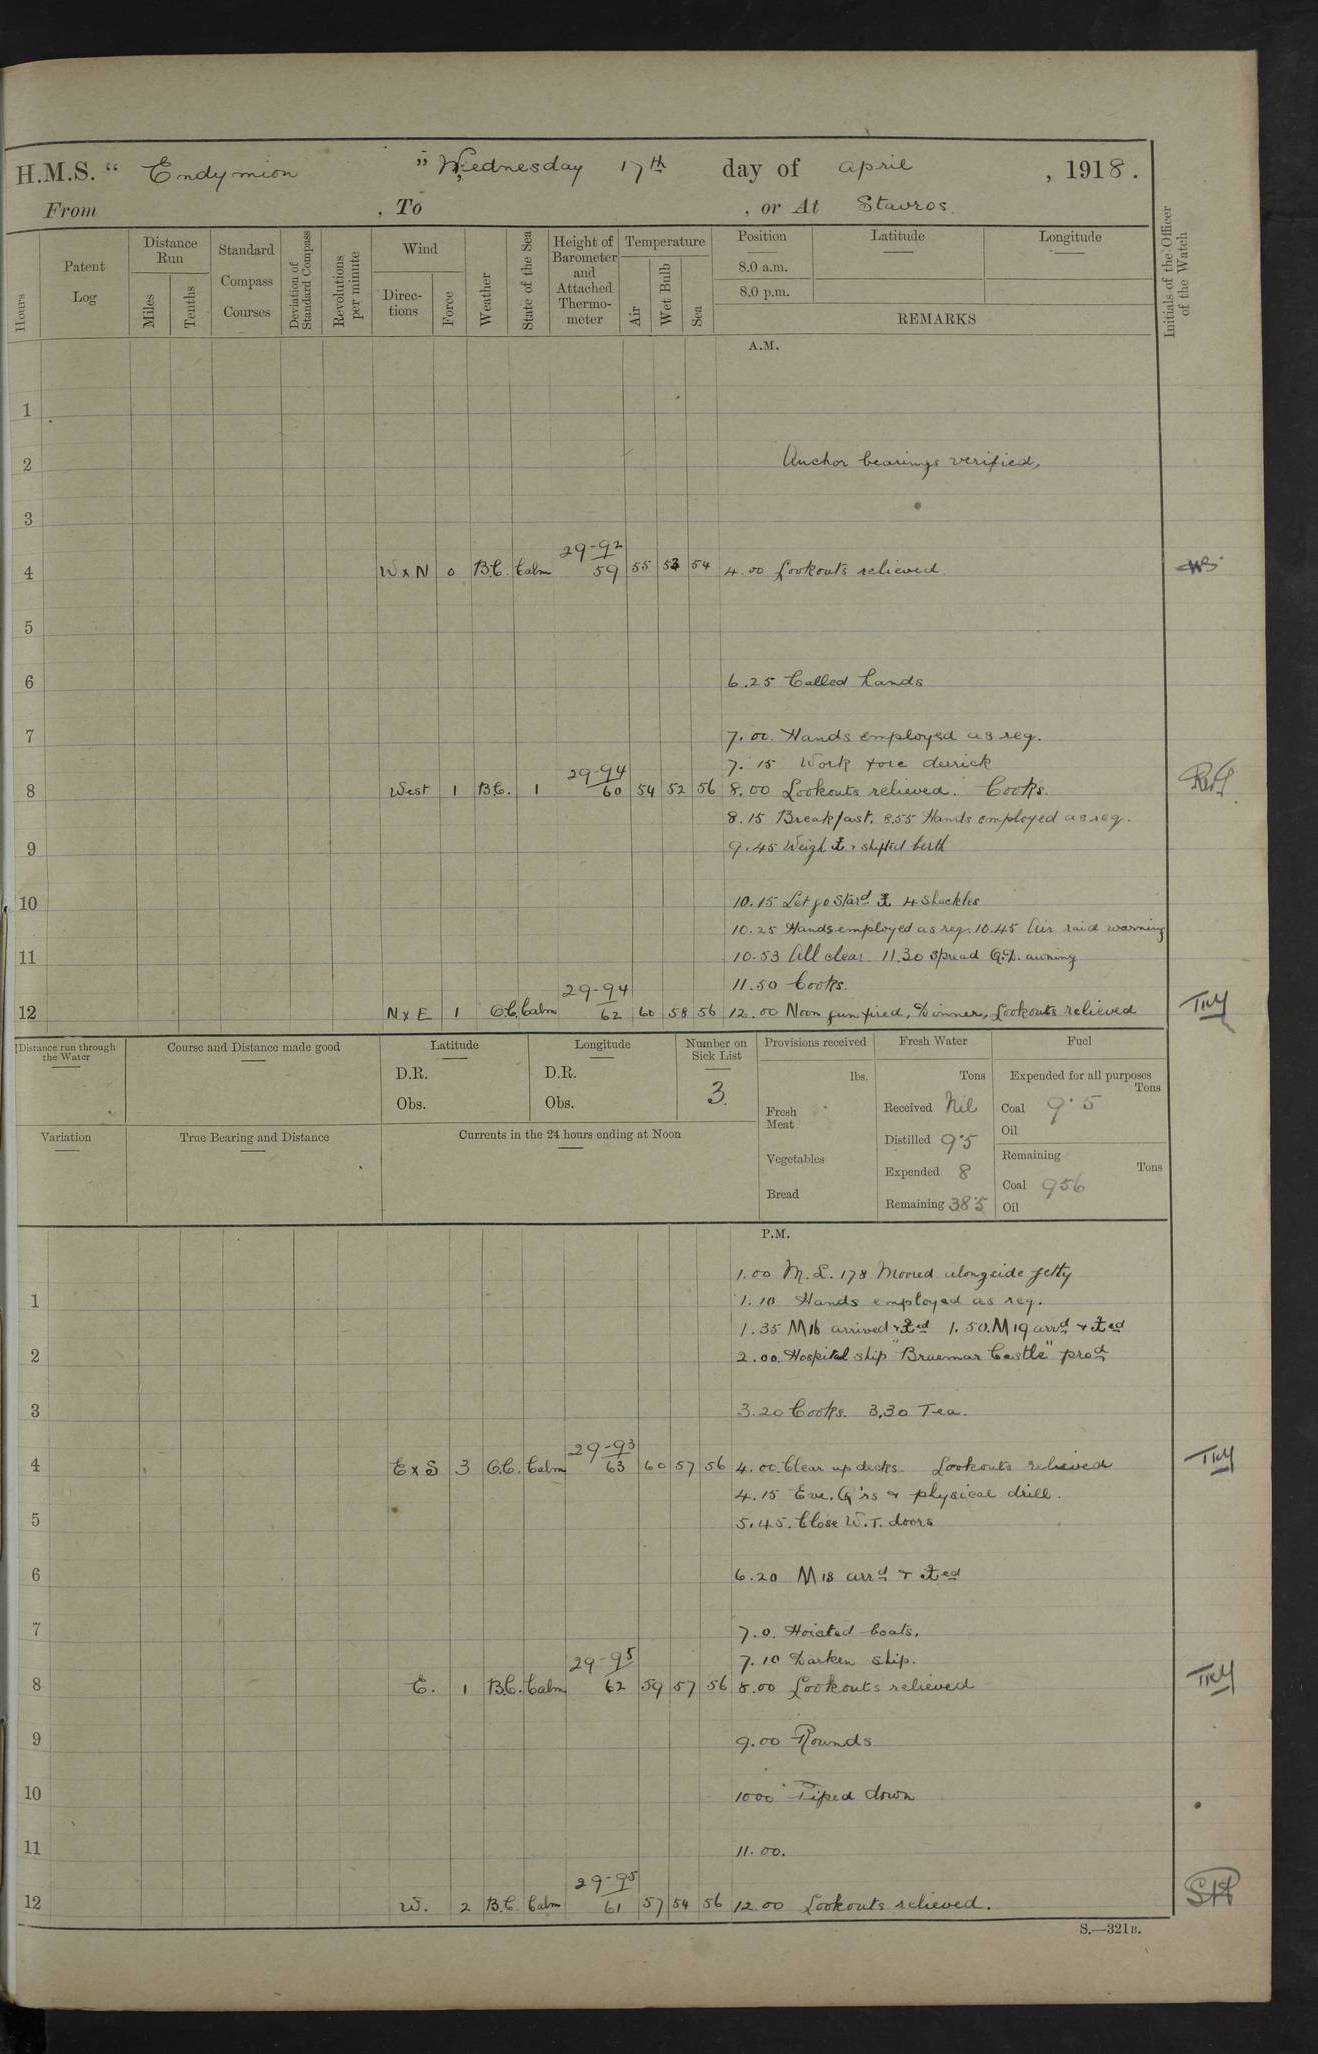 H.M.S. “ Endymion ” Wednesday 17th day of april , 1918.
From , To , or At Stavros.
Hours
Patent Log
Distance Run
Miles
Tenths
Standard Compass Courses
Deviation of Standard Compass
Revolutions per minute
Wind
Directions
Force
Weather
State of the Sea
Height of Barometer and Attached Thermometer
Temperature
Air
Wet Bulb
Sea
Position Latitude Longitude
8.0 a.m.
8.0 p.m.
REMARKS
Initials of the Officer of the Watch
A.M.
1
2 Anchor bearings verified,
3
29-92
4 W x N 0 B.C. Calm 59 55 53 54 4.00 Lookouts relieved
5
6 6.25 Called hands
7 7.00. Hands employed as reg.
7.15 Work fore derrick
29-94
8 West 1 B.C. 1 60 54 52 56 8.00 Lookouts relieved. Cooks.
8.15 Breakfast. 8.55 Hands employed as reg.
9 9.45 Weigh ⚓ & shifted berth
10 10.15 Let go Stard ⚓ 4 shackles
10.25 Hands employed as reg. 10.45 Air raid warning
11 10.53 All clear 11.30 Spread Q.D. awning
29-94 11.50 Cooks.
12 N x E 1 O.C. Calm 62 60 58 56 12.00 Noon gun fired, Dinner, Lookouts relieved
Distance run through the Water
Course and Distance made good
Latitude
D.R.
Obs.
Longitude
D.R.
Obs.
Number on Sick List
3.
Provisions received
lbs.
Fresh Meat
Vegetables
Bread
Fresh Water
Tons
Received Nil
Distilled 9·5
Expended 8
Remaining 38·5
Fuel
Expended for all purposes
Tons
Coal 9·5
Oil
Remaining
Tons
Coal 956
Oil
Variation
True Bearing and Distance
Currents in the 24 hours ending at Noon
P.M.
1.00 M.L. 178 Moored alongside jetty
1 1.10 Hands employed as reg.
1.35 M16 arrived & ⚓ed 1.50. M19 arrd & ⚓ed
2 2.00. Hospital ship "Braemar Castle" procd
3 3.20 Cooks. 3.30 Tea.
29-93
4 E x S 3 O.C. Calm 63 60 57 56 4.00. Clear up decks. Lookouts relieved
4.15 Eve. Q'rs & physical drill.
5 5.45. Close W.T. doors
6 6.20 M18 arrd & ⚓ed
7 7.0. Hoisted boats.
29-95 7.10 Darken ship.
8 E. 1 B.C. Calm 62 59 57 56 8.00 Lookouts relieved
9 9.00 Rounds
10 1000 Piped down
11 11.00.
29-95
12 W. 2 B.C. Calm 61 57 54 56 12.00 Lookouts relieved.
S.—321B.